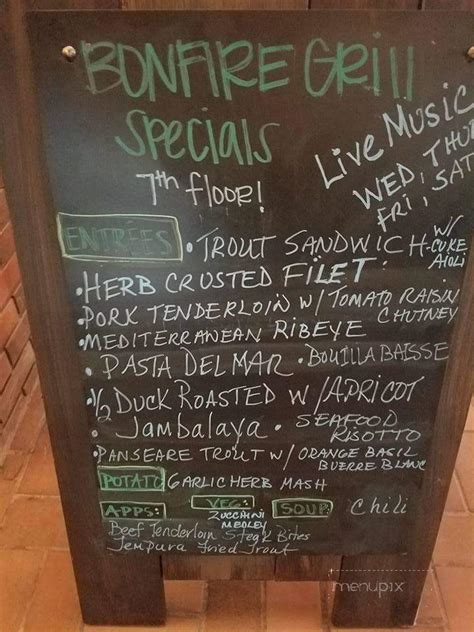 BONFIRE GRill
Specials
7th floor!
Live Music
WED, THU
FRI, SAT
ENTREES • TROUT SANDWICH W/
CUKE
AIOLI
• HERB CRUSTED FILET
• PORK TENDERLOIN W/ TOMATO RAISIN
CHUTNEY
• MEDITERRANEAN RIBEYE
• PASTA DEL MAR • BOUILLABAISSE
• ½ DUCK ROASTED W/ APRICOT
• Jambalaya • SEAFOOD
RISOTTO
• PANSEARE TROUT W/ ORANGE BASIL
BUERRE BLANC
POTATO GARLIC HERB MASH
APPS: VEG: SOUP: Chili
ZUCCHINI
MEDLEY
Beef Tenderloin Steak Bites
Tempura Fried Trout
menupix